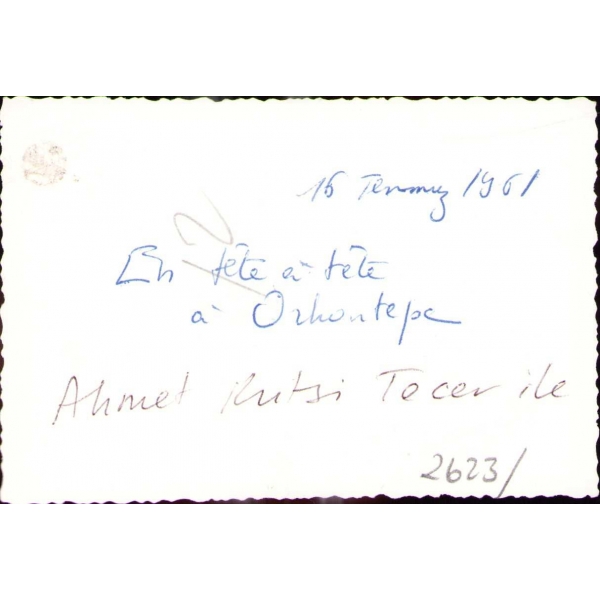 15 Temmuz 1961
12
En tête à tête
à Orhantepe
Ahmet Kutsi Tecer ile
2623/